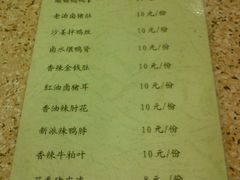 老油卤猪肚 10元/份
沙姜拌鸡丝 10元/份
卤水煨鸭胃 10元/份
香辣金钱肚 10元/份
红油卤猪耳 10元/份
香油辣肘花 10元/份
新派辣鸭脖 10元/份
香辣牛柏叶 10元/份
8元/份